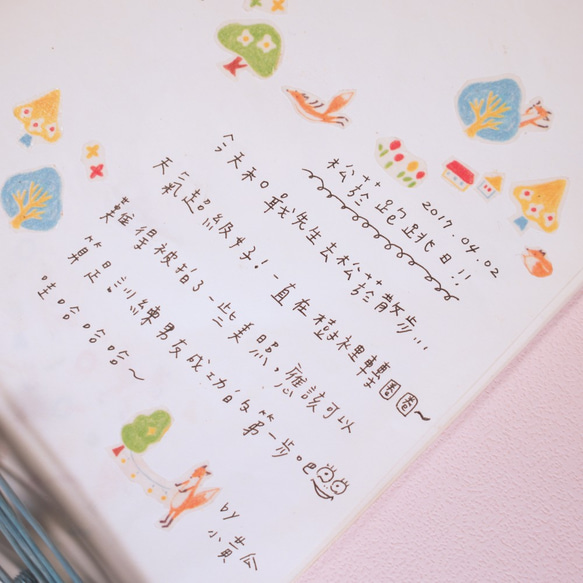 2017.04.02
松菸跑跳日!!
今天和先生去松菸散步...
天氣超級好!一直在樹裡轉圈圈~
難得被拍了一些美照,應該可以
算是訓練男友成功的第一步。
哇哈。哈。哈~
by
小黃瓜